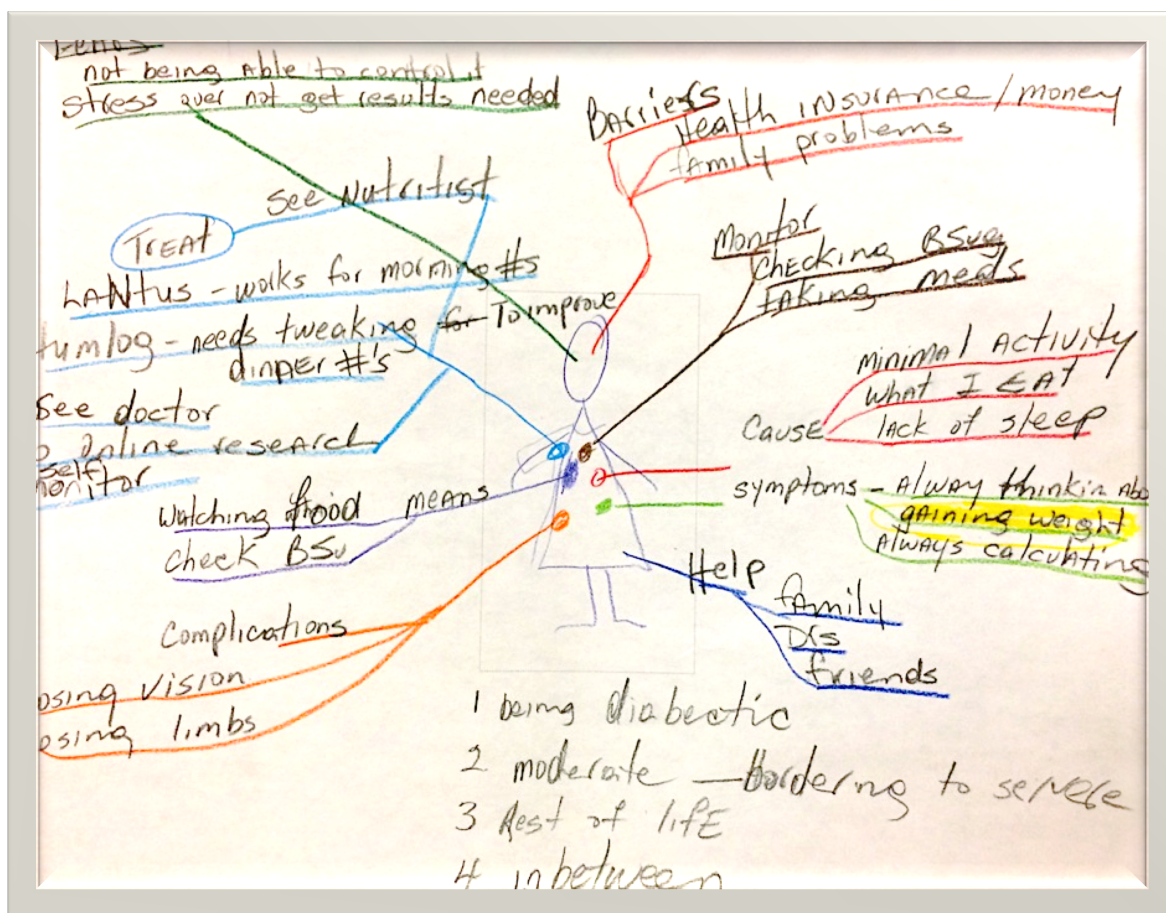 not being Able to control it
stress over not get results needed
Barriers
Health insurance / money
family problems
See Nutritist
Treat
Monitor
checking BSug
taking meds
LANtus - works for morning #s
umlog - needs tweaking for To improve
dinner #'s
See doctor
online research
self
monitor
minimal Activity
what I EAt
lack of sleep
Cause
symptoms - Alway thinkin Abo
gaining weight
Always calculating
watching food means
check BSu
Help
family
Drs
friends
Complications
osing vision
osing limbs
1 being diabectic
2 moderate — Bordering to servere
3 Rest of lifE
4 inbetween